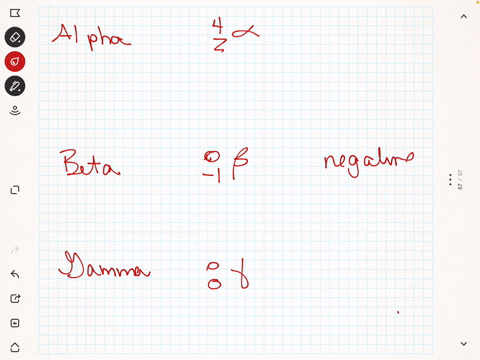 Alpha 4 2 α
Beta 0 -1 β negative
Gamma 0 0 γ
57 / 57